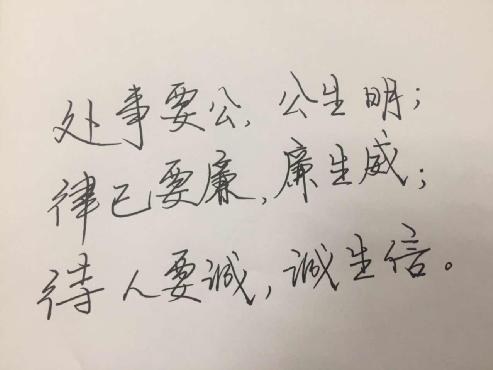 处事要公,公生明;
律己要廉,廉生威;
待人要诚,诚生信。